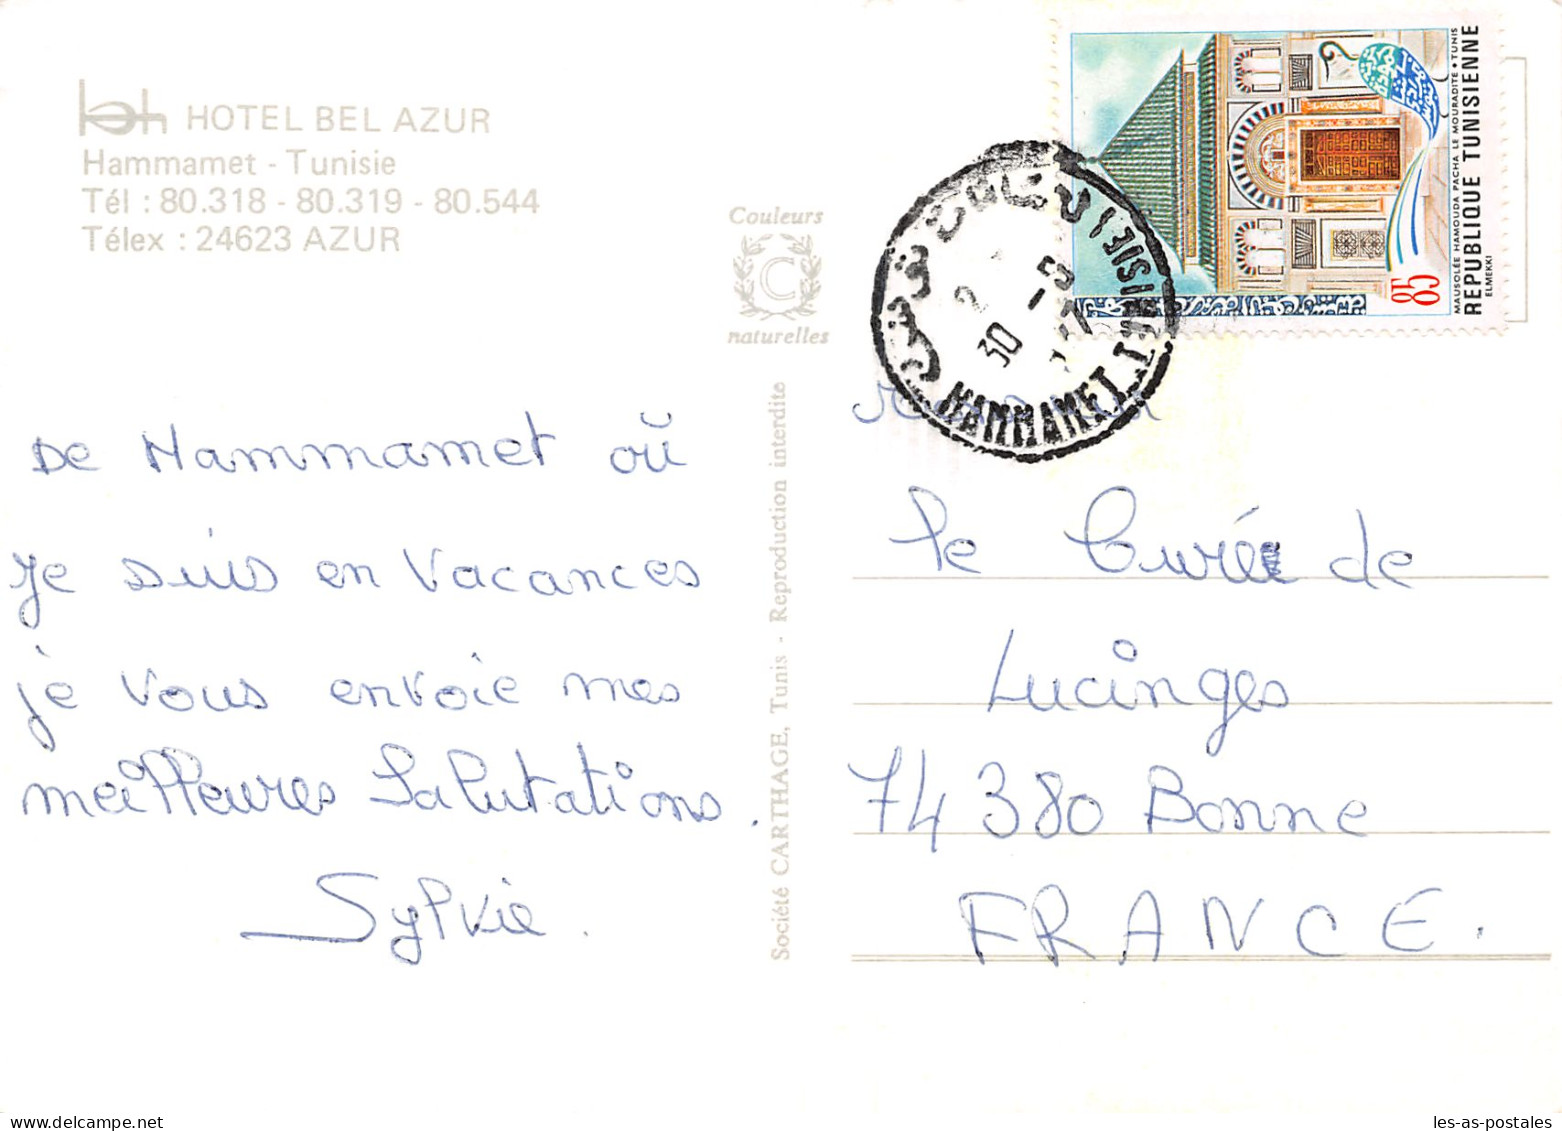 HOTEL BEL AZUR
Hammamet - Tunisie
Tél : 80.318 - 80.319 - 80.544
Télex : 24623 AZUR
De Hammamet où
je suis en vacances
je vous envoie mes
meilleures Salutations.
Sylvie.
Couleurs
C
naturelles
Société CARTHAGE, Tunis - Reproduction interdite
MAUSOLÉE HAMOUDA PACHA LE MOURADITE • TUNIS
REPUBLIQUE TUNISIENNE
ELMEKKI
85
HAMMAMET
30
le Curé de
Lucinges
74380 Bonne
FRANCE.
les-as-postales